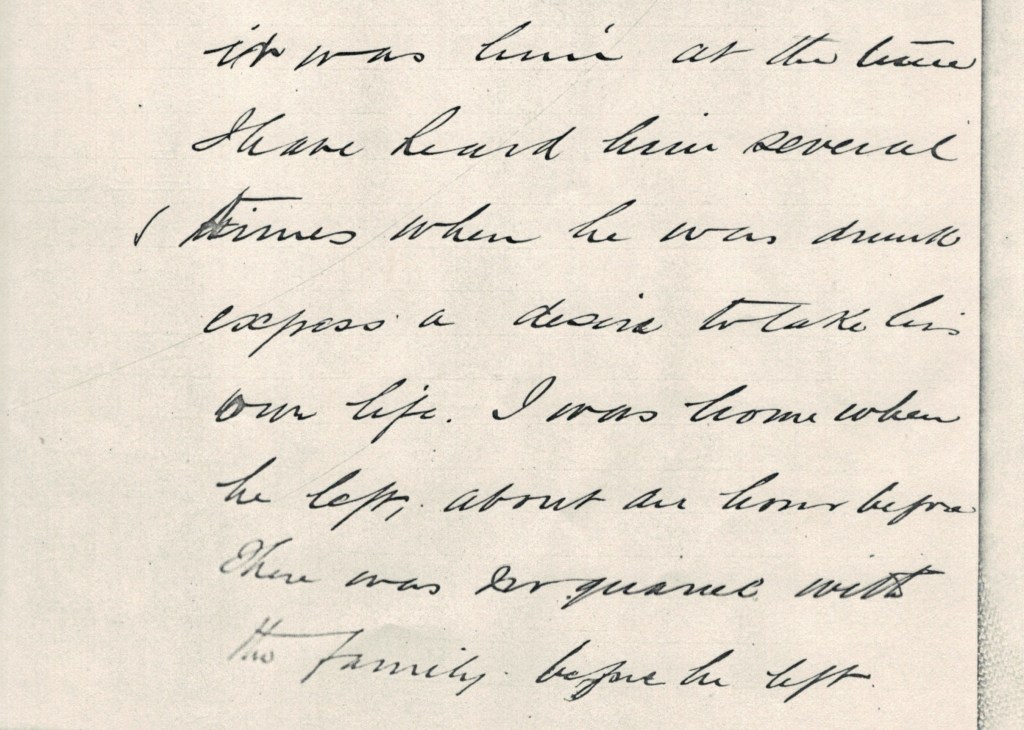 it was him at the time
I have heard him several
times when he was drunk
express a desire to take his
own life. I was home when
he left, about an hour before
There was no quarrel with
the family before he left.